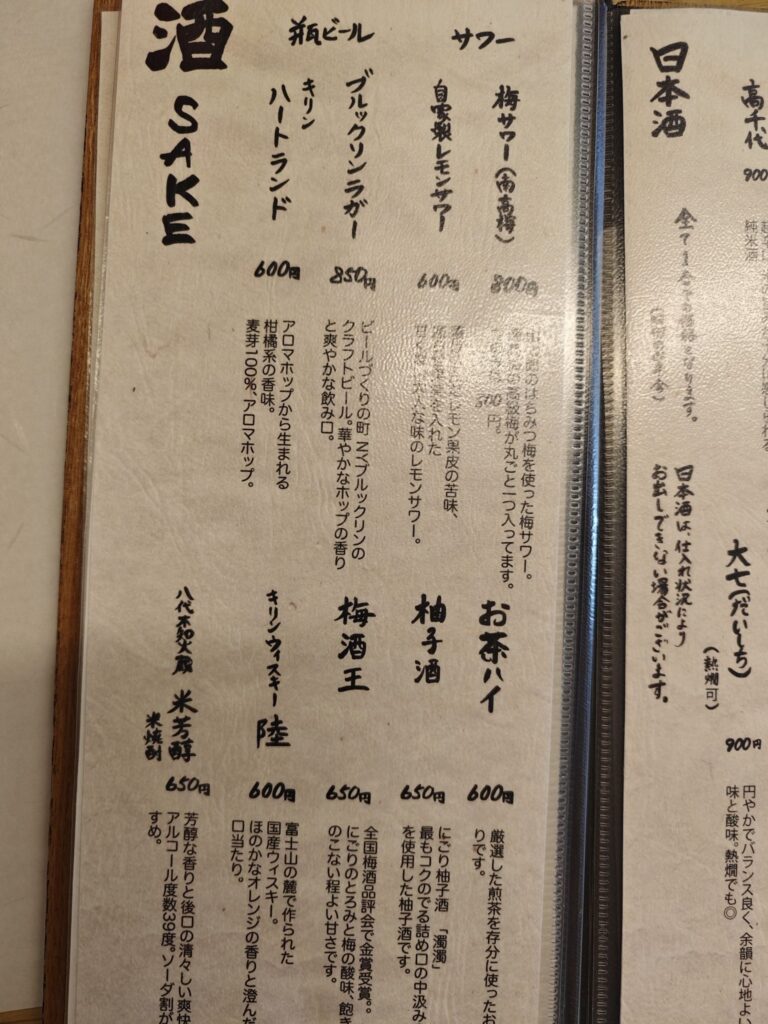 酒
SAKE
サワー
梅サワー(南高梅)
800円
のはちみつ梅を使った梅サワー。
高級梅が丸ごと一つ入ってます。
自家製レモンサワー
600円
レモン果皮の苦味、
を入れた
大人な味のレモンサワー。
瓶ビール
ブルックリンラガー
850円
ビールづくりの町 NYブルックリンの
クラフトビール。華やかなホップの香り
と爽やかな飲み口。
キリン
ハートランド
600円
アロマホップから生まれる
柑橘系の香味。
麦芽100%、アロマホップ。
お茶ハイ
600円
厳選した煎茶を存分に使ったお
りです。
柚子酒
650円
にごり柚子酒 「濁濁」
最もコクのでる詰め口の中汲み
を使用した柚子酒です。
梅酒王
650円
全国梅酒品評会で金賞受賞。。
にごりのとろみと梅の酸味、飽き
のこない程よい甘さです。
キリンウィスキー 陸
600円
富士山の麓で作られた
国産ウィスキー。
ほのかなオレンジの香りと澄んだ
口当たり。
八代不知火蔵 米芳醇
米焼酎
650円
芳醇な香りと後口の清々しい爽快
アルコール度数39度。ソーダ割が
すめ。
日本酒
全て1合での価格となります。
日本酒は、仕入れ状況により
お出しできない場合がございます。
高千代
900
純米酒
大七(だいしち)
(熱燗可)
900円
円やかでバランス良く、余韻に心地よい
味と酸味。熱燗でも◎